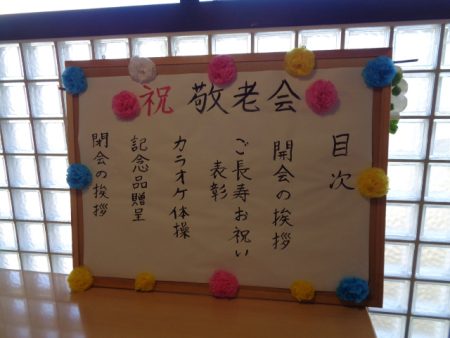 祝 敬老会
目次
開会の挨拶
ご長寿お祝い
表彰
カラオケ体操
記念品贈呈
閉会の挨拶